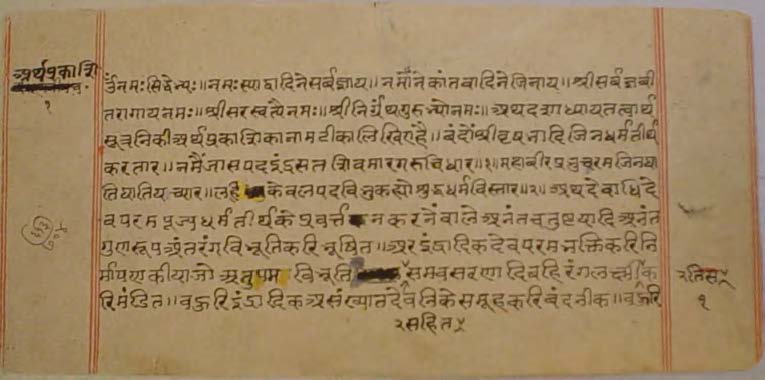 अर्थप्रकाशि
१
ॐ नमः सिद्धेभ्यः॥ नमः स्याद्वादिने सर्वज्ञाय॥ नमोनेकांतवादिने जिनाय॥ श्री सर्वज्ञवी
तरागाय नमः॥ श्री सरस्वत्यै नमः॥ श्री निर्ग्रंथगुरुभ्यो नमः॥ अथ दशाध्याय तत्वार्थ
सूत्रनिकी अर्थप्रकाशिका नाम टीका लिखिए है॥ वंदों श्री वृषभादि जिन धर्मतीर्थ
करतार॥ नमै जास पद इंद्र सत शिवमारग रुचि धार॥१॥ महावीर प्रभु चरम जिन घा
ति घातिय च्यार॥ लहि केवल पद विभु कह्यो शुद्ध धर्म विस्तार॥२॥ अथ देवाधिदे
व परम पूज्य धर्मतीर्थ के प्रवर्त्तन करनेंवाले अनंतचतुष्टयादि अनंत
गुणरूप अंतरंग विभूति करि भूषित॥ अर इंद्रादिक देव परम भक्ति करि नि
र्मापण कीया जो अनुपम विभूति समवसरणादि बहिरंग लक्ष्मी क
रि मंडित॥ बहुरि इंद्रादिक असंख्यात देवनिके समूह करि वंदनीक॥ बहुरि
२ सहित
१